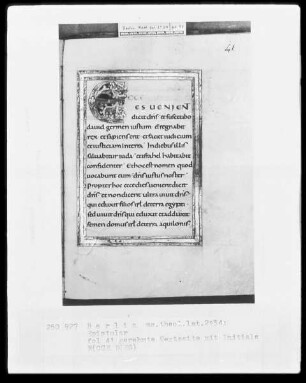 41
ES UENIENT
dicit dns et suscitabo
dauid germen iustum et regnabit
rex et sapiens erit et faciet iudicium
et iustitiam in terra In diebus illis
saluabitur iuda et israhel habitabit
confidenter Et hoc est nomen quod
uocabunt eum dns iustus noster
propter hoc ecce dies ueniunt dicit
dns et non dicent ultra uiuit dns
qui eduxit filios isrl de terra egypti
sed uiuit dns qui eduxit et adduxit
semen domus isrl de terra aquilonis
200 927 Berlin ms.theol.lat.
Epistolar
fol 41 gerahmte Textseite mit Initiale